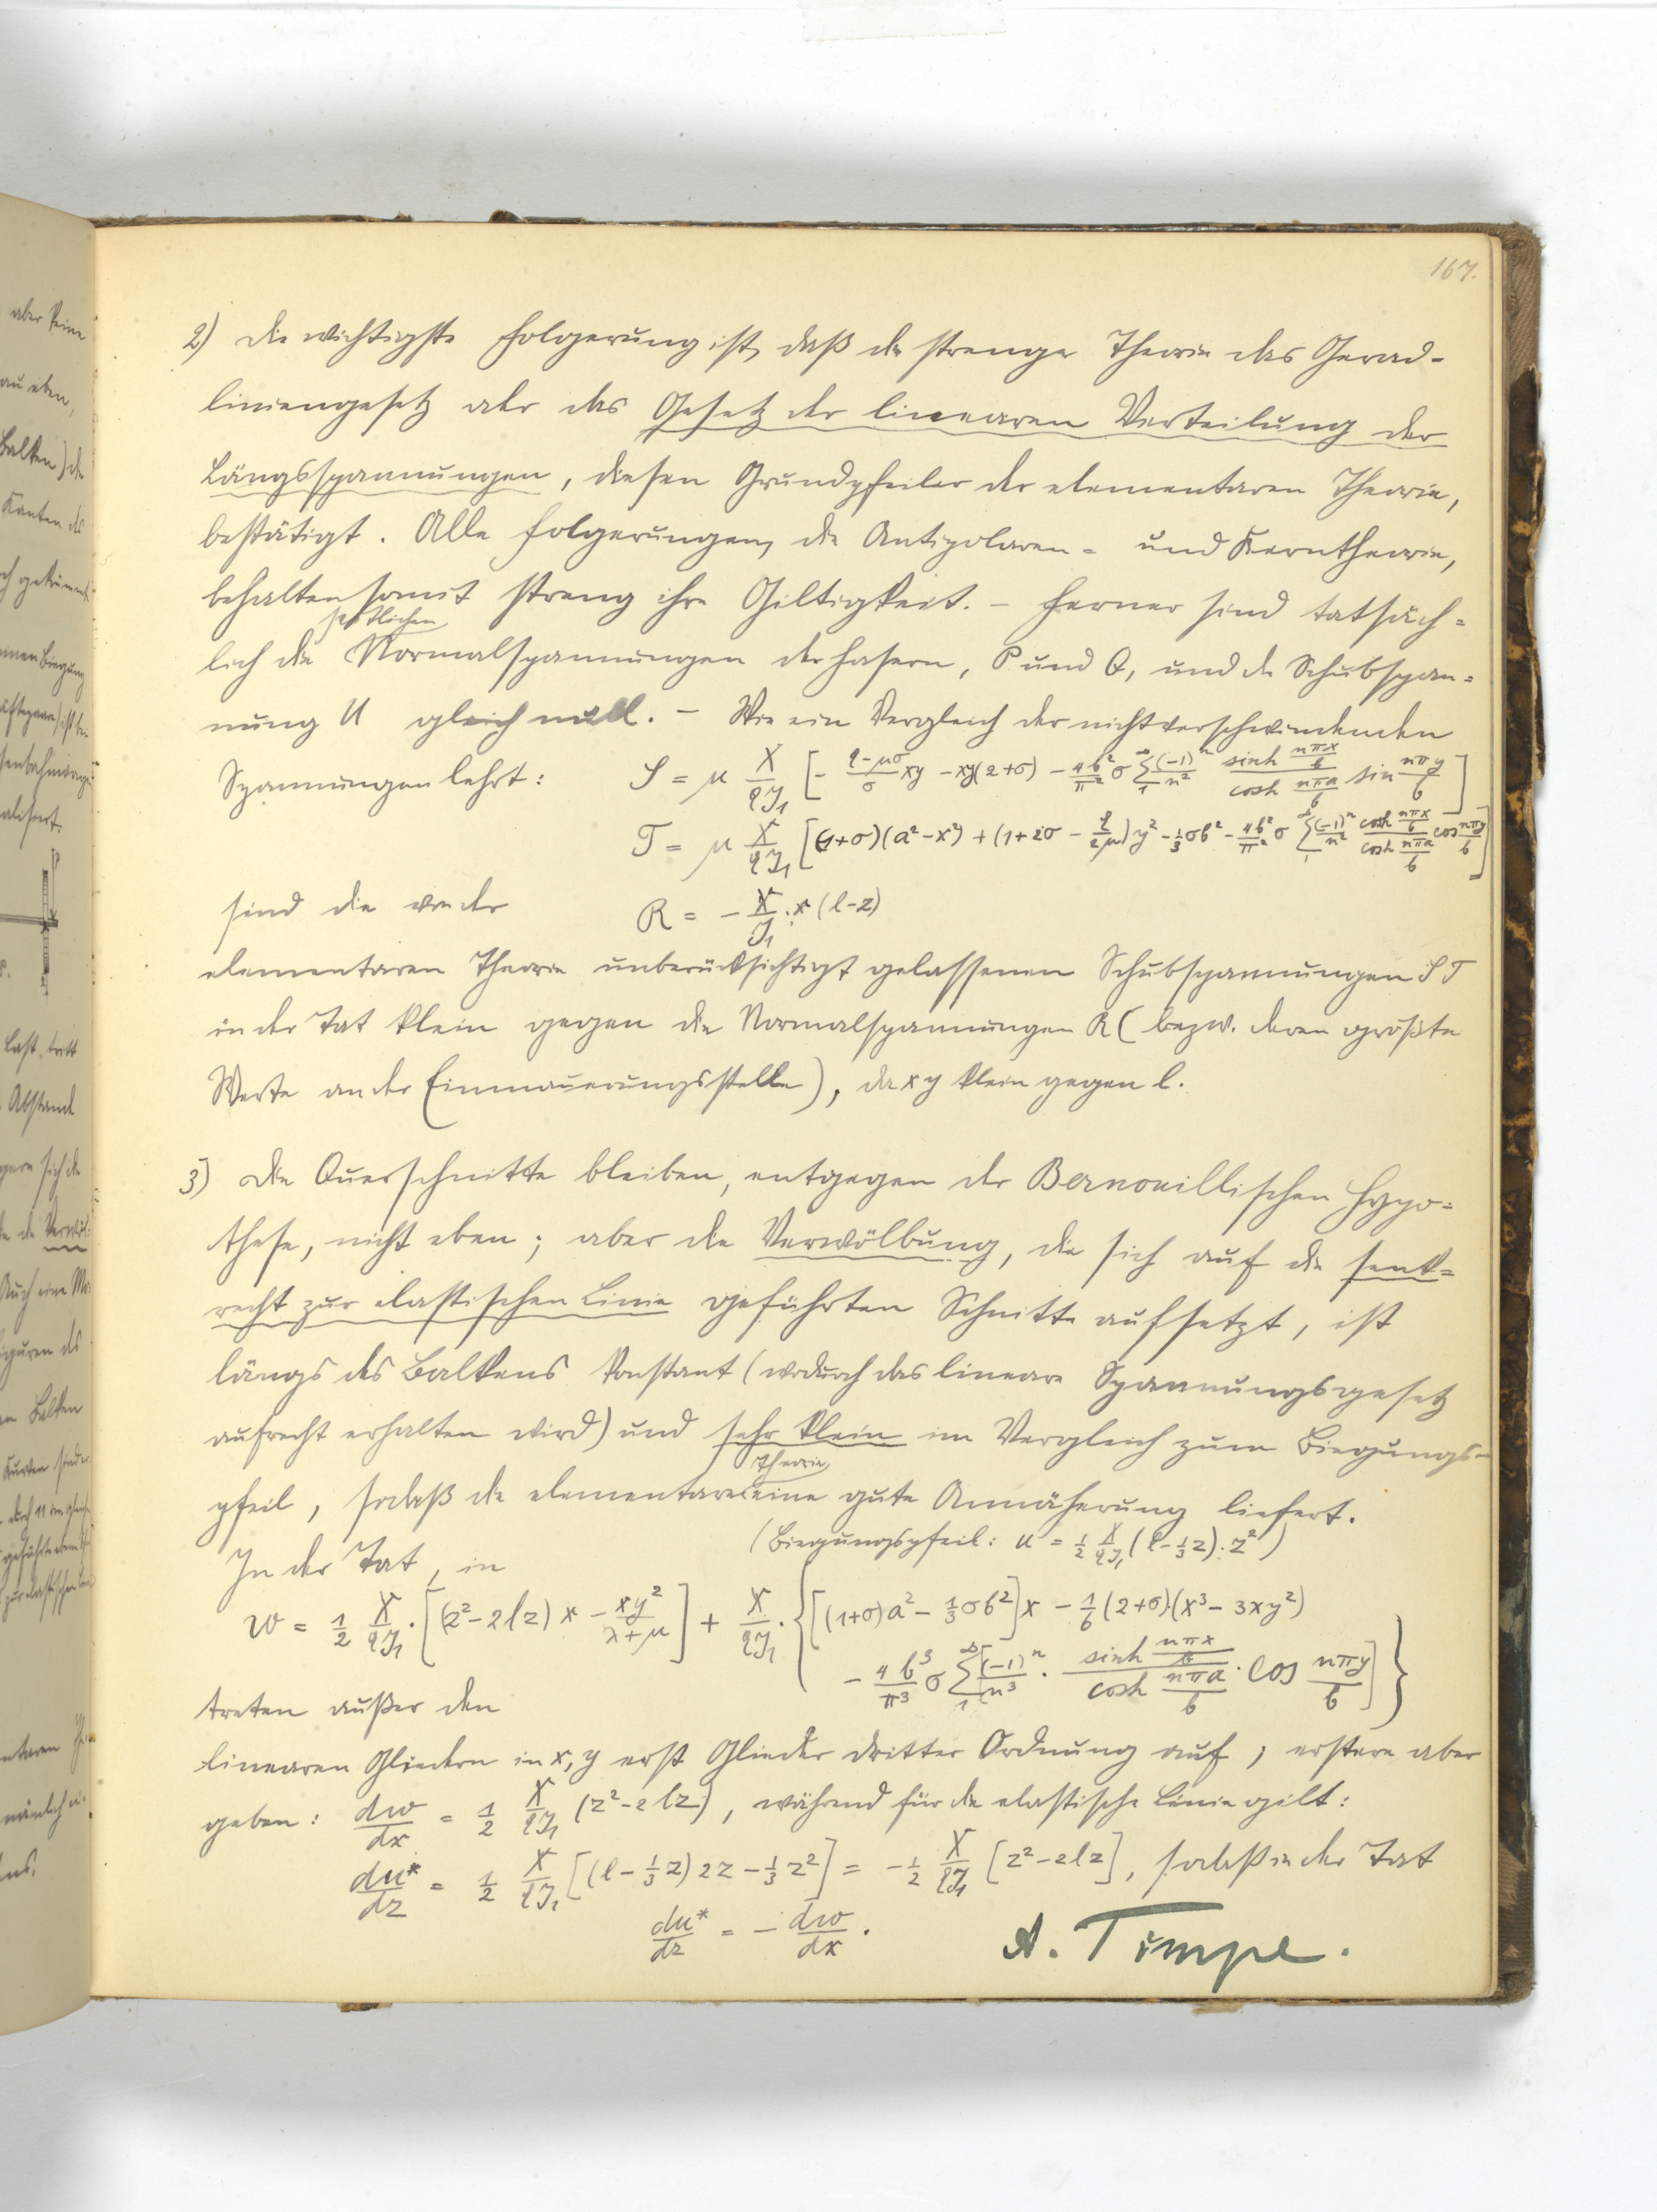 167.
2) Die wichtigste Folgerung ist, daß die strenge Theorie das Gerad-
liniengesetz oder das Gesetz der linearen Verteilung der
Längsspannungen, diesen Grundpfeiler der elementaren Theorie,
bestätigt. Alle Folgerungen, die Antipolaren- und Kerntheorie,
behalten somit streng ihre Giltigkeit. – Ferner sind tatsäch-
seitlichen
lich die Normalspannungen der Fasern, P und Q, und die Schubspan-
nung U gleich null. – Wie ein Vergleich der nichtverschwindenden
Spannungen lehrt: S = μ X/qJ₁ [- (q-μσ)/σ xy - xy(2+σ) - 4b²/π² σ Σ₁^∞ (-1)ⁿ/n² (sinh nπx/b)/(cosh nπa/b) sin nπy/b]
T = μ X/qJ₁ [(1+σ)(a²-x²) + (1+2σ - q/2μ)y² - 1/3 σb² - 4b²/π² σ Σ₁^∞ (-1)ⁿ/n² (cosh nπx/b)/(cosh nπa/b) cos nπy/b]
sind die von der R = - X/J₁ · x (l-z)
elementaren Theorie unberücksichtigt gelassenen Schubspannungen S T
in der Tat klein gegen die Normalspannungen R (bezw. deren größte
Werte an der Einmauerungsstelle), da x y klein gegen l.
3) Die Querschnitte bleiben, entgegen der Bernouillischen Hypo-
these, nicht eben; aber die Verwölbung, die sich auf die senk-
recht zur elastischen Linie geführten Schnitte aufsetzt, ist
längs des Balkens konstant (wodurch das lineare Spannungsgesetz
aufrecht erhalten wird) und sehr klein im Vergleich zum Biegungs-
Theorie
pfeil, sodaß die elementare eine gute Annäherung liefert.
(Biegungspfeil: u = 1/2 X/qJ₁ (l - 1/3 z) · z²)
In der Tat, in
w = 1/2 X/qJ₁ · [(z²-2lz) x - xy²/(λ+μ)] + X/qJ₁ · {[(1+σ)a² - 1/3 σb²]x - 1/6 (2+σ)·(x³-3xy²)
- 4b³/π³ σ Σ₁^∞ [(-1)ⁿ/n³ · (sinh nπx/b)/(cosh nπa/b) · cos nπy/b]}
treten außer den
linearen Gliedern in x, y erst Glieder dritter Ordnung auf; erstere aber
geben: dw/dx = 1/2 X/qJ₁ (z²-2lz), während für die elastische Linie gilt:
du*/dz = 1/2 X/qJ₁ [(l - 1/3 z) 2z - 1/3 z²] = - 1/2 X/qJ₁ [z²-2lz], sodaß in der Tat
du*/dz = - dw/dx.
A. Timpe.